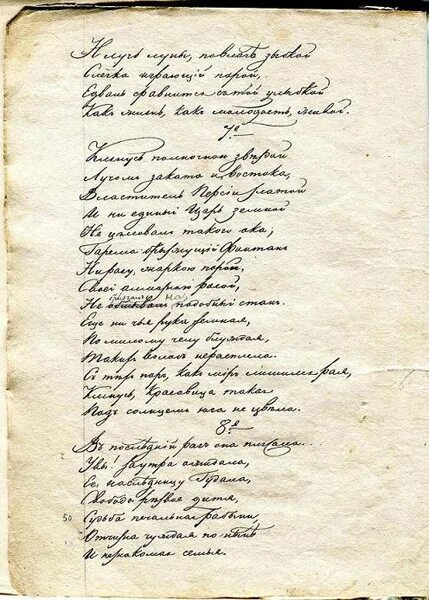 И лучъ луны, по влагѣ зыбкой
Слегка играющій порой,
Едваль сравнится съ той улыбкой
Какъ жизнь, какъ молодость, живой.
7.
Клянусь полночною звѣздой
Лучомъ заката и востока,
Властитель Персіи златой
И ни единый Царь земной
Не цѣловалъ такого ока,
Гарема брызжущій фонтанъ
Ни разу, жаркою порой,
Своей алмазною росой,
Не подобный станъ.
Еще ни чья рука земная,
По милому челу блуждая,
Такихъ волосъ не расплела.
Съ тѣхъ поръ, какъ міръ лишился рая,
Клянусь, красавица такая
Подъ солнцемъ юга не цвѣла.
8.
Въ послѣдній разъ она плясала...
Увы! заутра ожидала,
Ее, наслѣдницу Гудала,
Свободы рѣзвое дитя,
50 Судьба печальная рабыни,
Отчизна чуждая по нынѣ
И незнакомая семья.